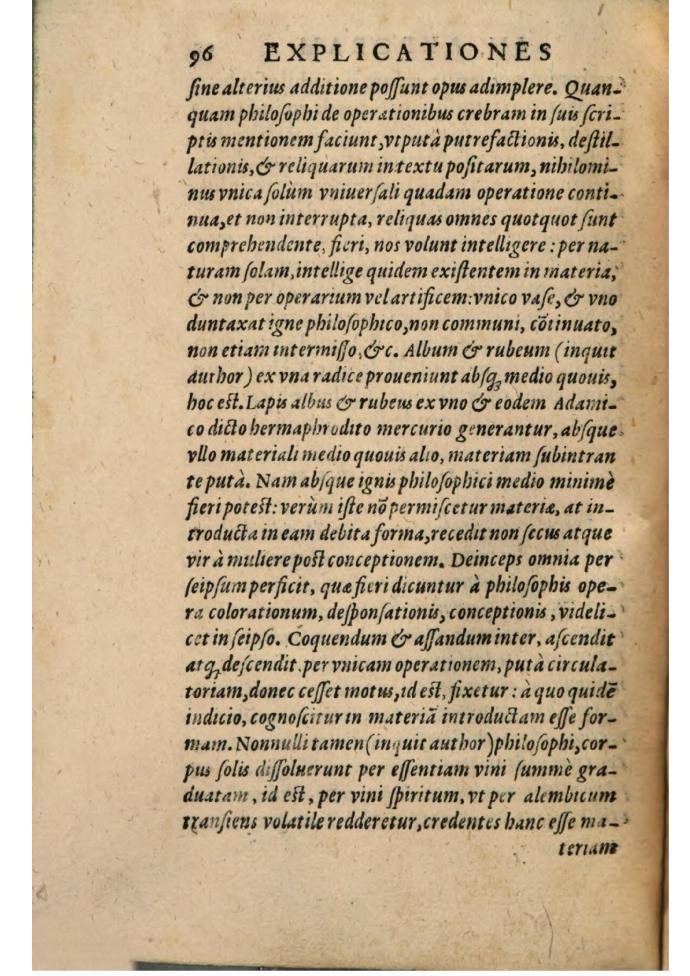 96 EXPLICATIONES
ſine alterius additione poſſunt opus adimplere. Quan-
quam philoſophi de operationibus crebram in ſuis ſcri-
ptis mentionem faciunt, vtputà putrefactionis, deſtil-
lationis, & reliquarum in textu poſitarum, nihilomi-
nus vnica ſolùm vniuerſali quadam operatione conti-
nua, et non interrupta, reliquas omnes quotquot ſunt
comprehendente, fieri, nos volunt intelligere : per na-
turam ſolam, intellige quidem exiſtentem in materia,
& non per operarium vel artificem: vnico vaſe, & vno
duntaxat igne philoſophico, non communi, cōtinuato,
non etiam intermiſſo, &c. Album & rubeum (inquit
author) ex vna radice proueniunt abſq; medio quouis,
hoc eſt. Lapis albus & rubeus ex vno & eodem Adami-
co dicto hermaphrodito mercurio generantur, abſque
vllo materiali medio quouis alio, materiam ſubintran
te putà. Nam abſque ignis philoſophici medio minimè
fieri poteſt: verùm iſte nō permiſcetur materiæ, at in-
troducta in eam debita forma, recedit non ſecus atque
vir à muliere poſt conceptionem. Deinceps omnia per
ſeipſum perficit, quæ fieri dicuntur à philoſophis ope-
ra colorationum, deſponſationis, conceptionis, videli-
cet in ſeipſo. Coquendum & aſſandum inter, aſcendit
atq; deſcendit per vnicam operationem, putà circula-
toriam, donec ceſſet motus, id eſt, fixetur : à quo quidē
indicio, cognoſcitur in materiā introductam eſſe for-
mam. Nonnulli tamen (inquit author) philoſophi, cor-
pus ſolis diſſoluerunt per eſſentiam vini ſummè gra-
duatam, id eſt, per vini ſpiritum, vt per alembicum
tranſiens volatile redderetur, credentes hanc eſſe ma-
teriam